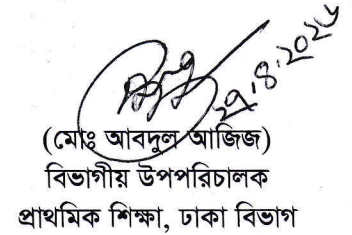 ২৯.৪.২০২৬
(মোঃ আবদুল আজিজ)
বিভাগীয় উপপরিচালক
প্রাথমিক শিক্ষা, ঢাকা বিভাগ